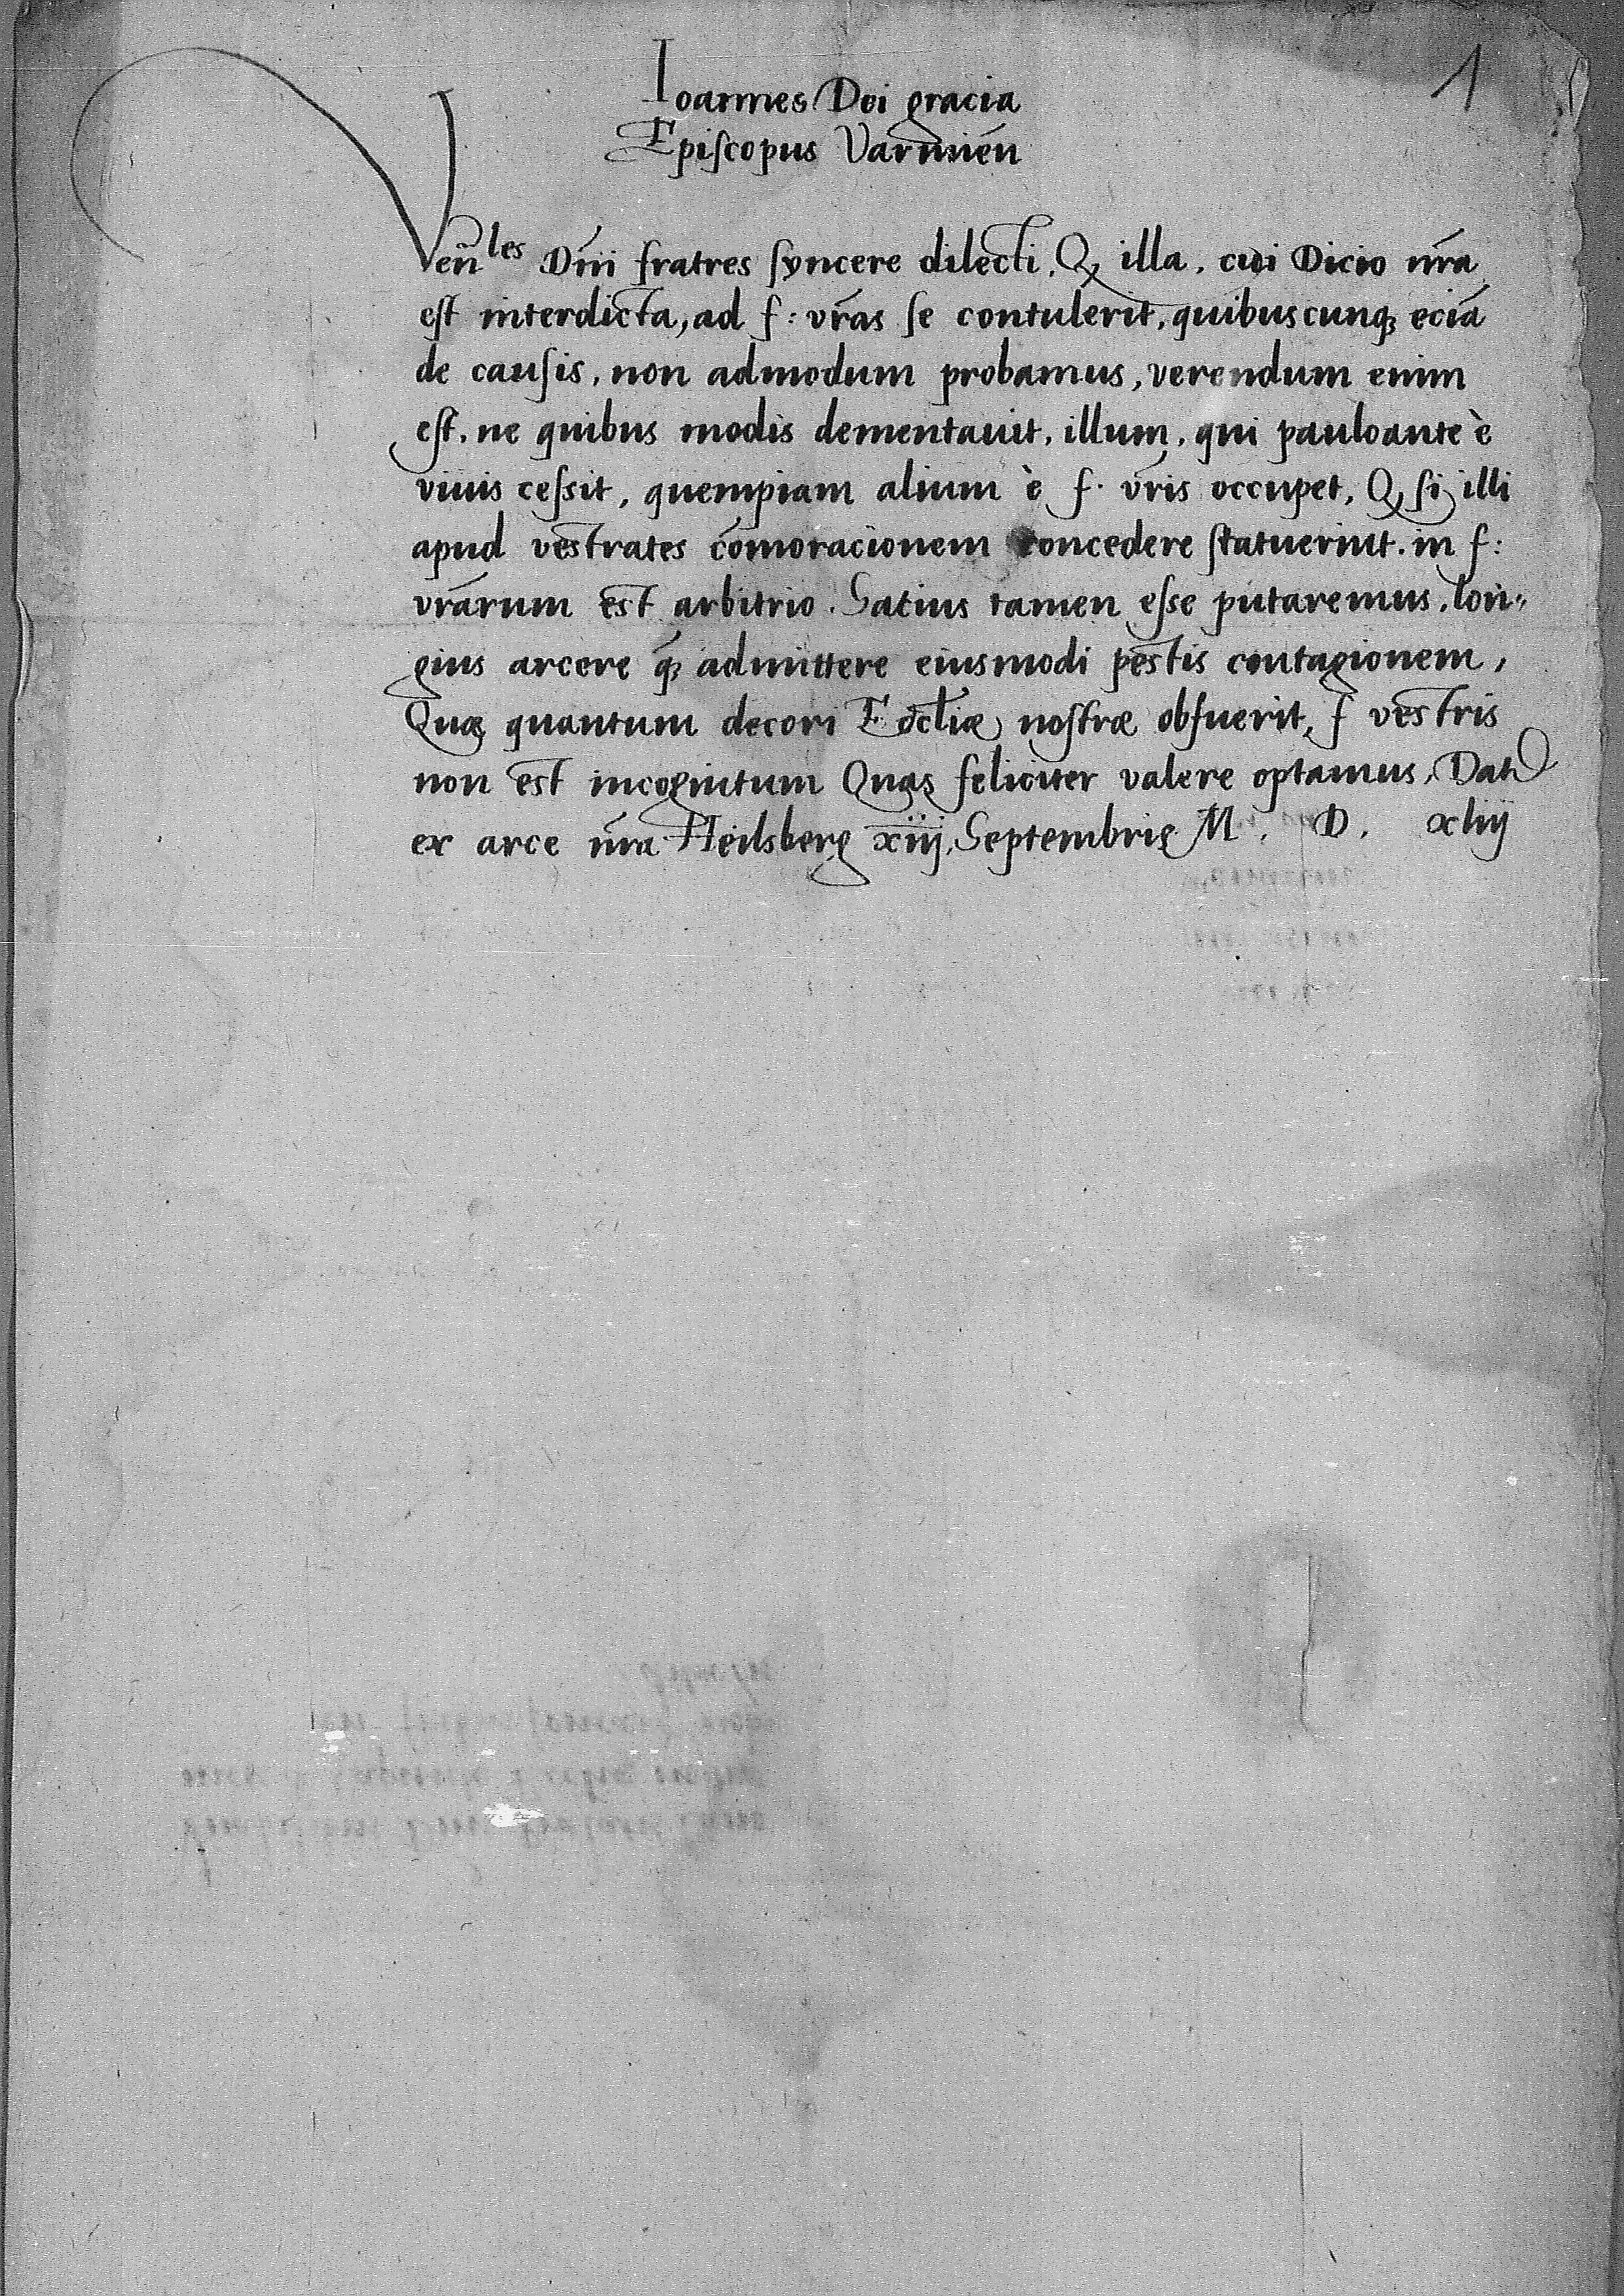 1
Ioannes Dei gracia
Episcopus Varmień
Veñles Dn̄i fratres syncere dilecti. Q illa, cui Dicio nr̄a
est interdicta, ad f: vr̄as se contulerit, quibuscunq; eciā
de causis, non admodum probamus, verendum enim
est, ne quibus modis dementauit, illum, qui pauloante è
viuis cessit, quempiam alium è f. vr̄is occupet, Q si illi
apud vestrates com̄oracionem concedere statuerint. in f:
vr̄arum est arbitrio. Satius tamen esse putaremus, lon⸗
gius arcere q̄; admittere eiusmodi pestis contagionem,
Quæ quantum decori Eccl̄iæ nostræ obfuerit, f vestris
non est incognitum Quas feliciter valere optamus, Dat
ex arce nr̄a Heilsberg xiij, Septembris M. D. xliij